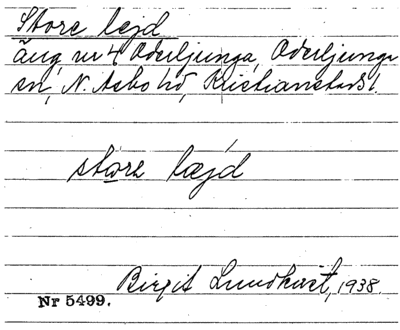 Store lejd
äng nr 4 Oderljunga, Oderljunga
sn, N. Åsbo hd, Kristianstads l.
store læjd
Birgit Lundkvist, 1938.
Nr 5499.